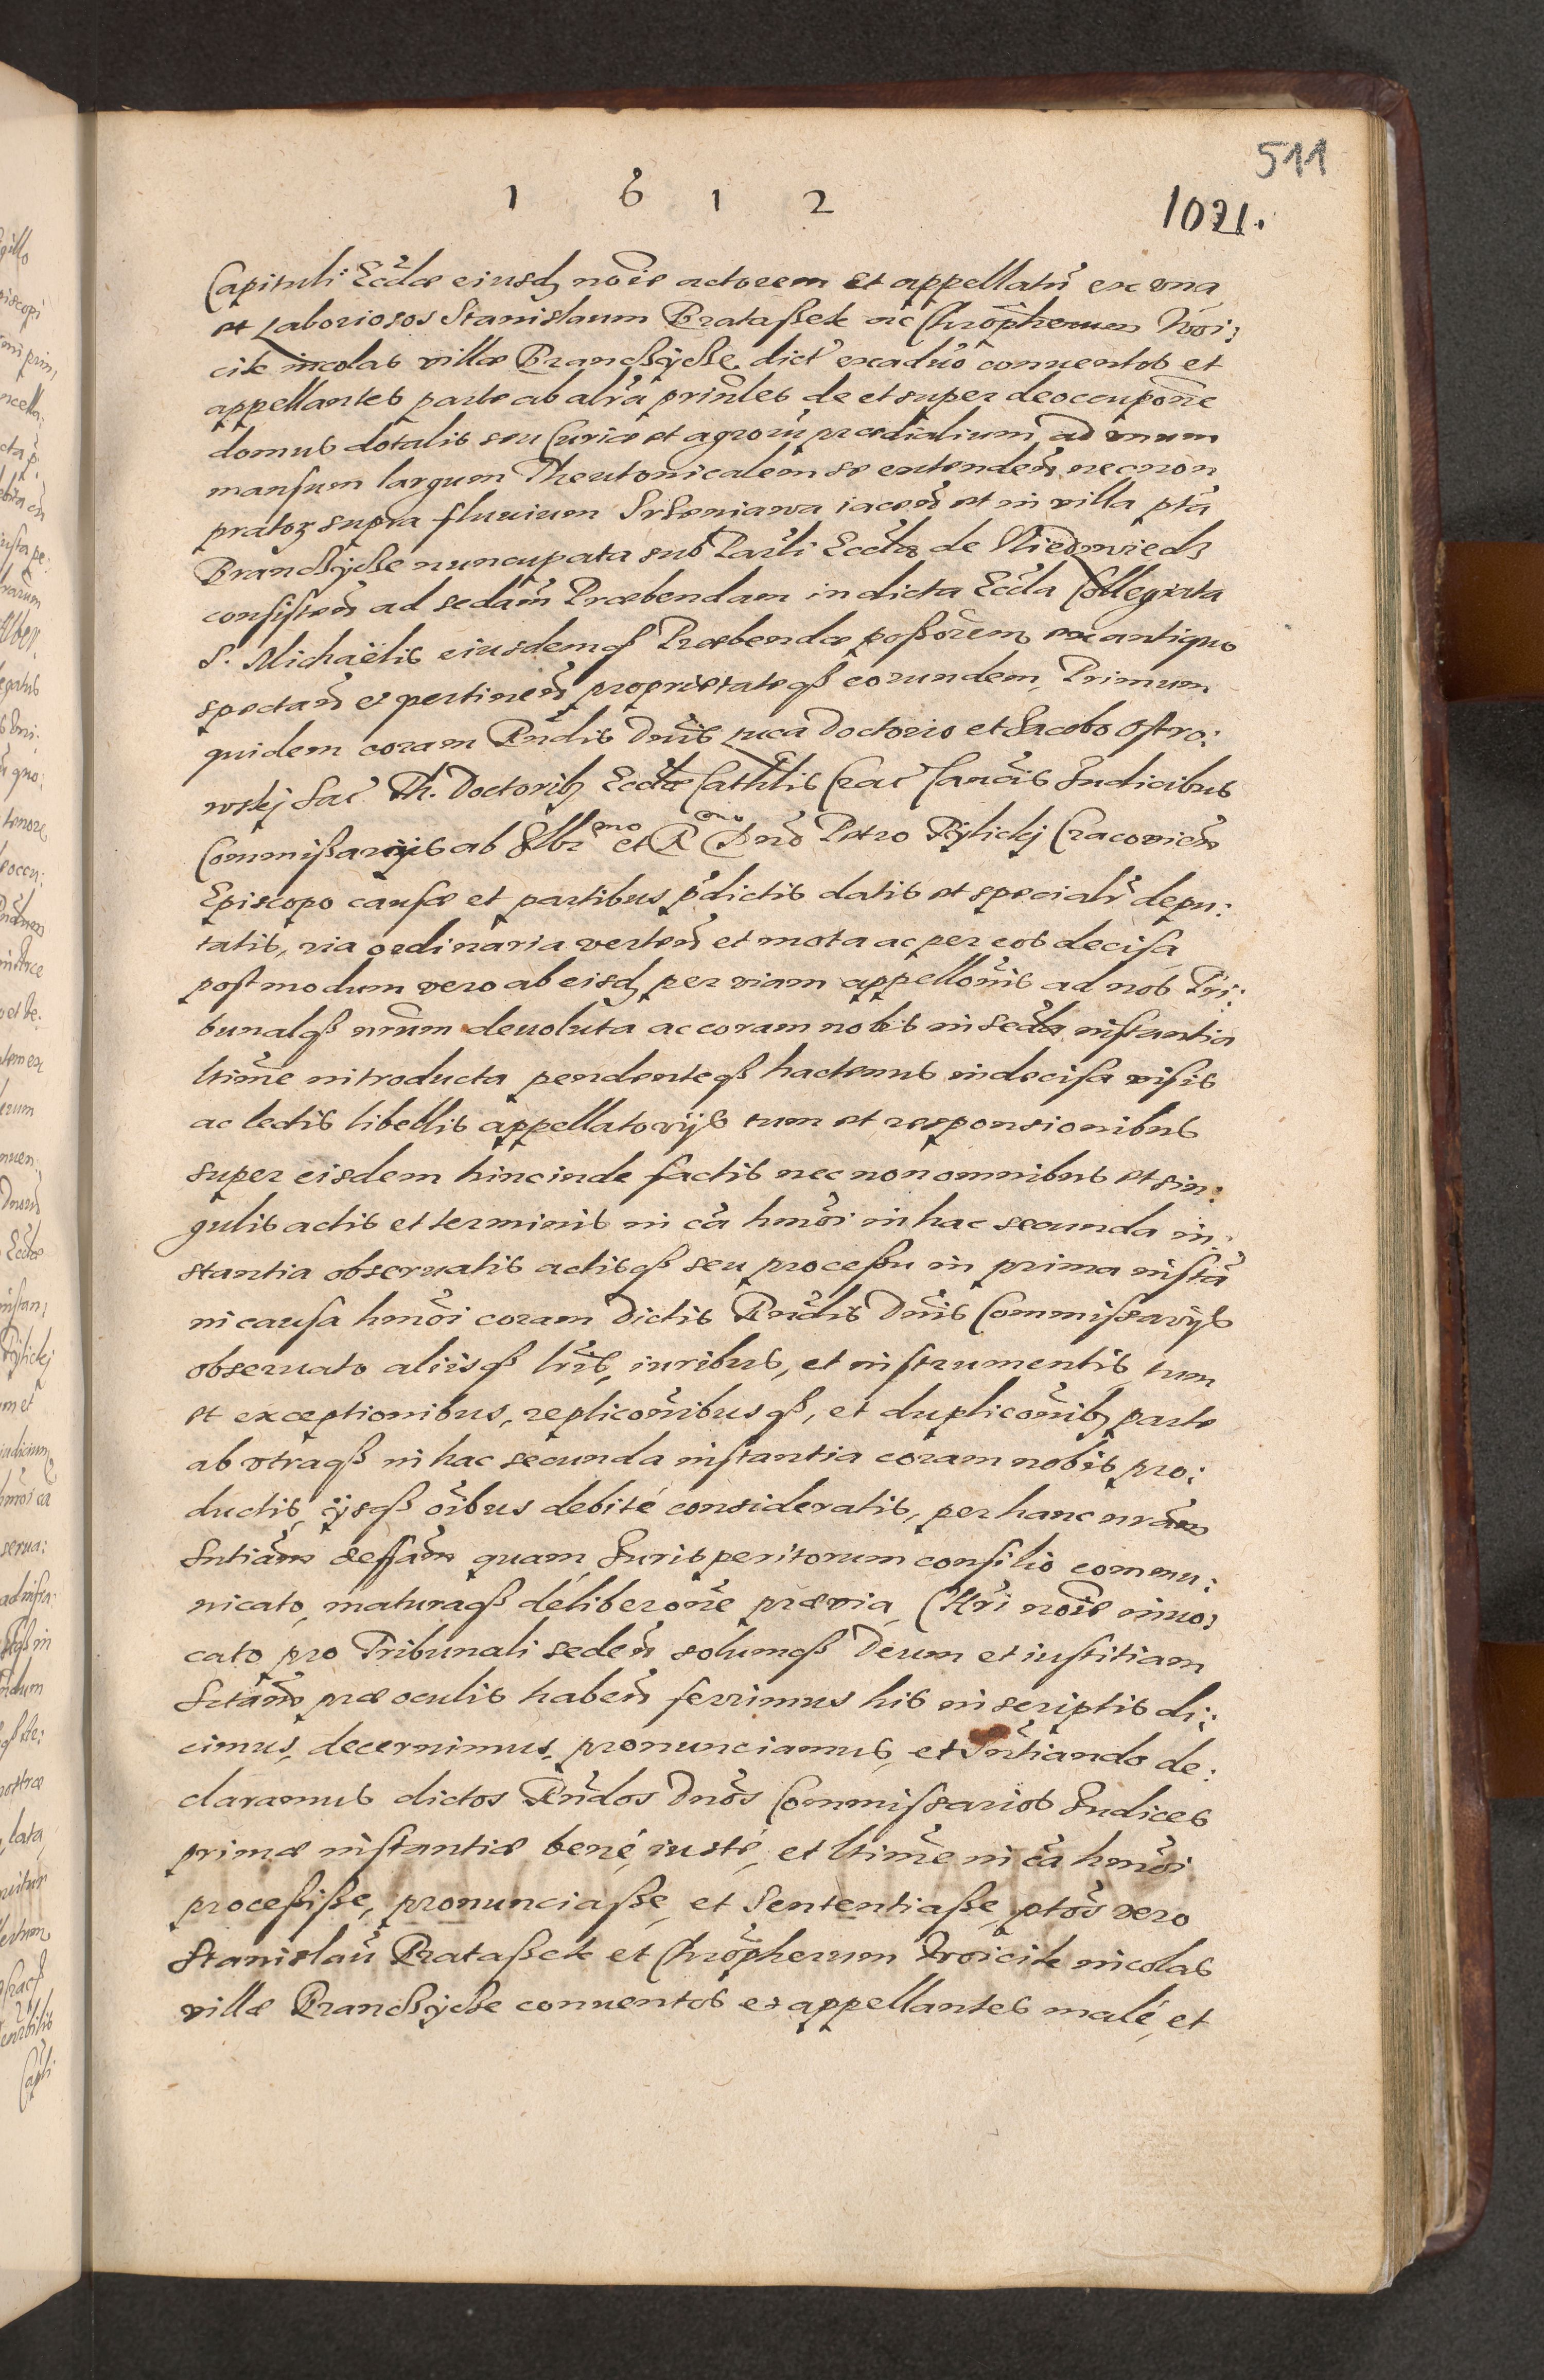 511
1 6 1 2
1021.
Capituli Eccłae eiusdꝫ noĩe actorem et appellatũ ex vna
et Laboriosos Stanislaum Prataßek ac Chrõpherum Woi:
cik incolas villae Prandßyčße dict̃ ex aduo conuentos et
appellantes parte ab altr̃a prinĩles de et super deoccupõne
domus dotalis seu Curiae et agrorũ praedialium ad vnum
mansum largum Theutonicalem se extendeñ necnon
pratoꝝ supra fluuium Srzeniawa iaceñ et in villa pta
Prandßyčße nuncupata sub Parłi Eccła de Niedzwiedz
consisteñ ad sedam̃ Praebendam in dicta Eccła Collegiata
S. Michaëlis eiusdemqß Praebendae poßorem ex antiquo
spectañ et pertineñ proprietateqß eorundem, Primum
quidem coram Rñdis Dnis Luca Doctorio et Jacobo Ostro:
wskj Sac̃ Th. Doctoribꝫ Eccłae Cathłis Crac̃ Canc̃is Judicibus
Commißarijs ab Illr̃mo et Rmo Dnõ Petro Tylickj Cracovieñ
Episcopo causae et partibus p̃dictis datis et specialr̃ depu:
tatis, via ordinaria verteñ et mota ac per eos decisa
postmodum vero ab eisdꝫ per viam appellõnis ad nos Tri:
bunalqß nrm̃ deuoluta ac coram nobis in secda instantia
ltime introducta pendenteqß hactenus indecisa visis
ac lectis libellis appellatorijs tum et responsionibus
super eisdem hincinde factis nec non omnibus et sin:
gulis actis et terminis in cã hmõi in hac secunda in:
stantia obseruatis actisqß seu proceßu in prima instã
in causa hmõi coram dictis Rñdis Dnis Commissarijs
obseruato aliisqß lr̃is, iuribus, et instrumentis, tum
et exceptionibus, replicõnibusqß, et duplicõnibꝫ parte
ab vtraqß in hac secunda instantia coram nobis pro:
ductis, ijsqß oĩbus debité consideratis, per hanc nram̃
Sntiam̃ deffam̃ quam Jurisperitorum consilio commu:
nicato, maturaqß deliberõne praevia, Chri noĩe inuo:
cato pro Tribunali sedeñ solumqß Deum et iustitiam
Sctam̃ prae oculis habeñ ferrimus his in scriptis di:
cimus, decernimus, pronunciamus, et Sñtiando de:
claramus dictos Rñdos Dnõs Commissarios Judices
primae instantiae bené, iusté, et ltime in cã hmõi
proceßiße, pronunciaße, et Sententiaße, ptos vero
Stanislaũ Prataßek et Chrõpherum Woicik incolas
villae Prandßyčße conuentos et appellantes malé, et